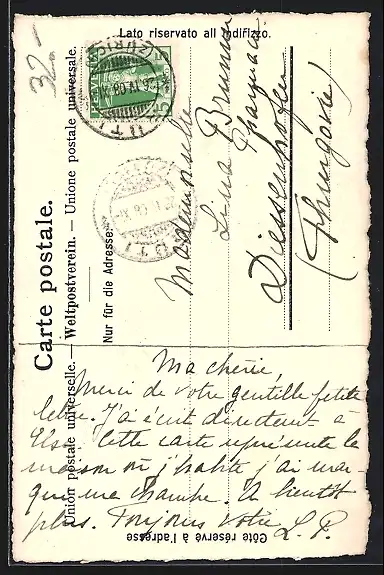 32.-
Carte postale.
Union postale universelle. — Weltpostverein. — Unione postale universale.
Nur für die Adresse.
Lato riservato all' indirizzo.
Côté réservé à l'adresse
HELVETIA
5
UTI
(ZÜRICH)
Mademoiselle
Lina Brunner
Pharmacie
Diessenhofen
(Thurgovie)
Ma chérie,
Merci de votre gentille petite
lettre. J'ai écrit directement à
Else. Cette carte représente la
maison où j'habite j'ai mar-
qué ma chambre. A bientôt
plus. Toujours votre L. P.